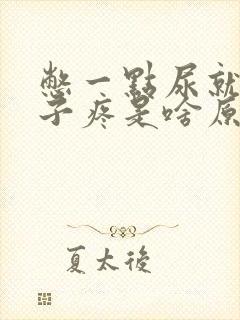 憋一點尿就
子疼是啥原
夏太後